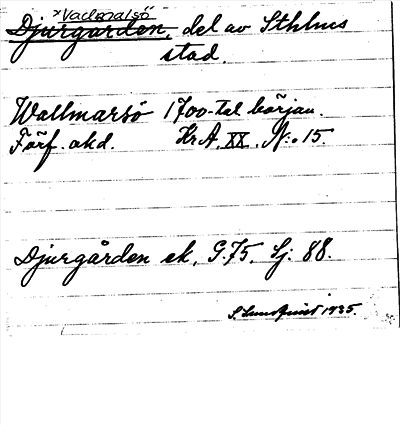 ×Vadmalsö
Djurgården, del av Sthlms
stad.
Wallmarsö 1700-tal början.
Förf. okd. Kr.A. XX. N:o 15.
Djurgården ek. G.75. Sj. 88.
S. Lundquist 1935.